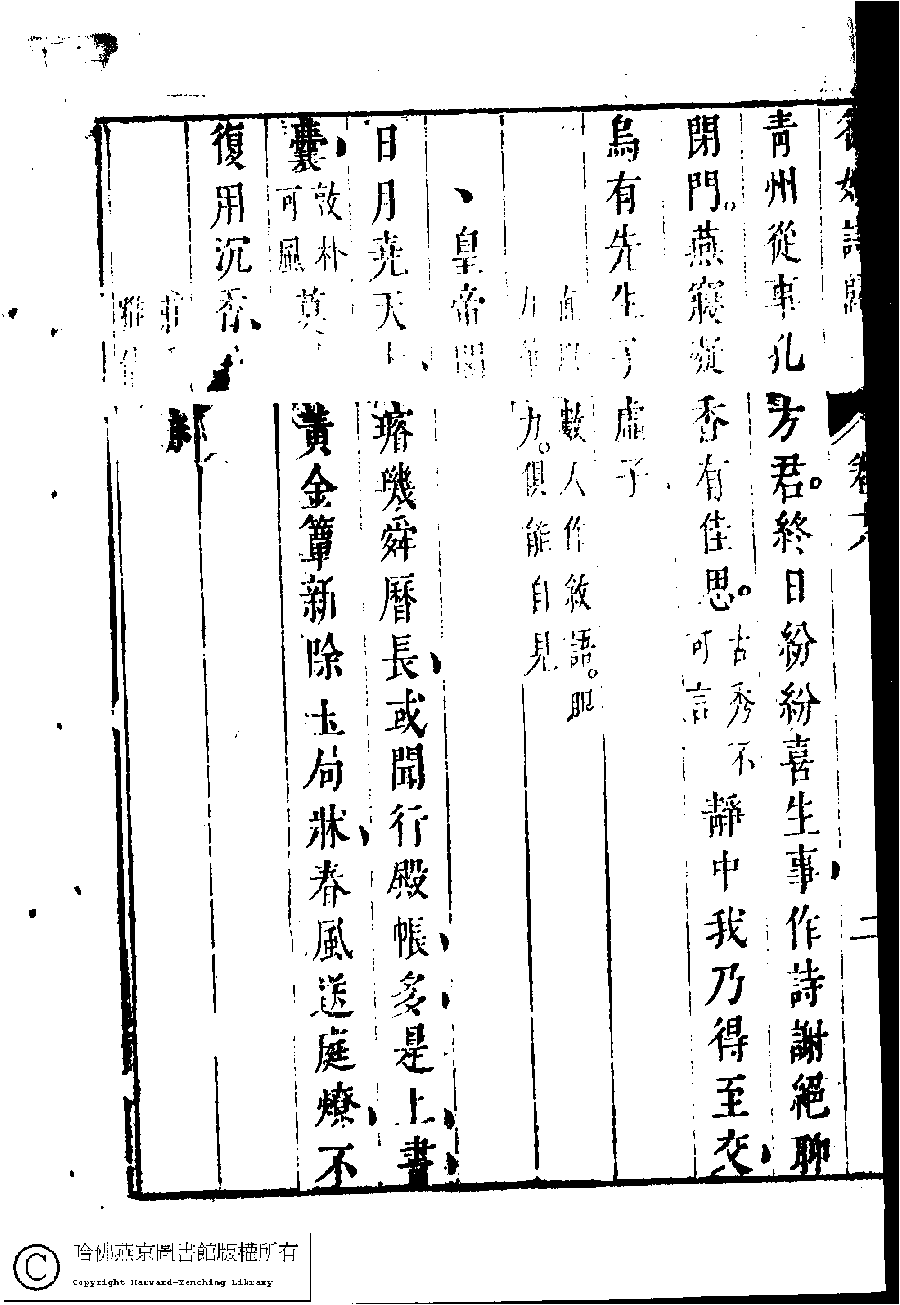 卷六
二
青州從事孔方君。終日紛紛喜生事、作詩謝絕聊
閉門。燕寢凝香有佳思。古秀不可言靜中我乃得至交、
烏有先生子虛子
數人作敘語。眼力。俱能自見
、皇帝閣
日月堯天璿璣舜曆長、或聞行殿帳、多是上、書、
囊、敦朴可風黃金簟新除玉局牀、春風送庭燎、不
復用沉香、
哈佛燕京圖書館版權所有
Copyright Harvard-Yenching Library